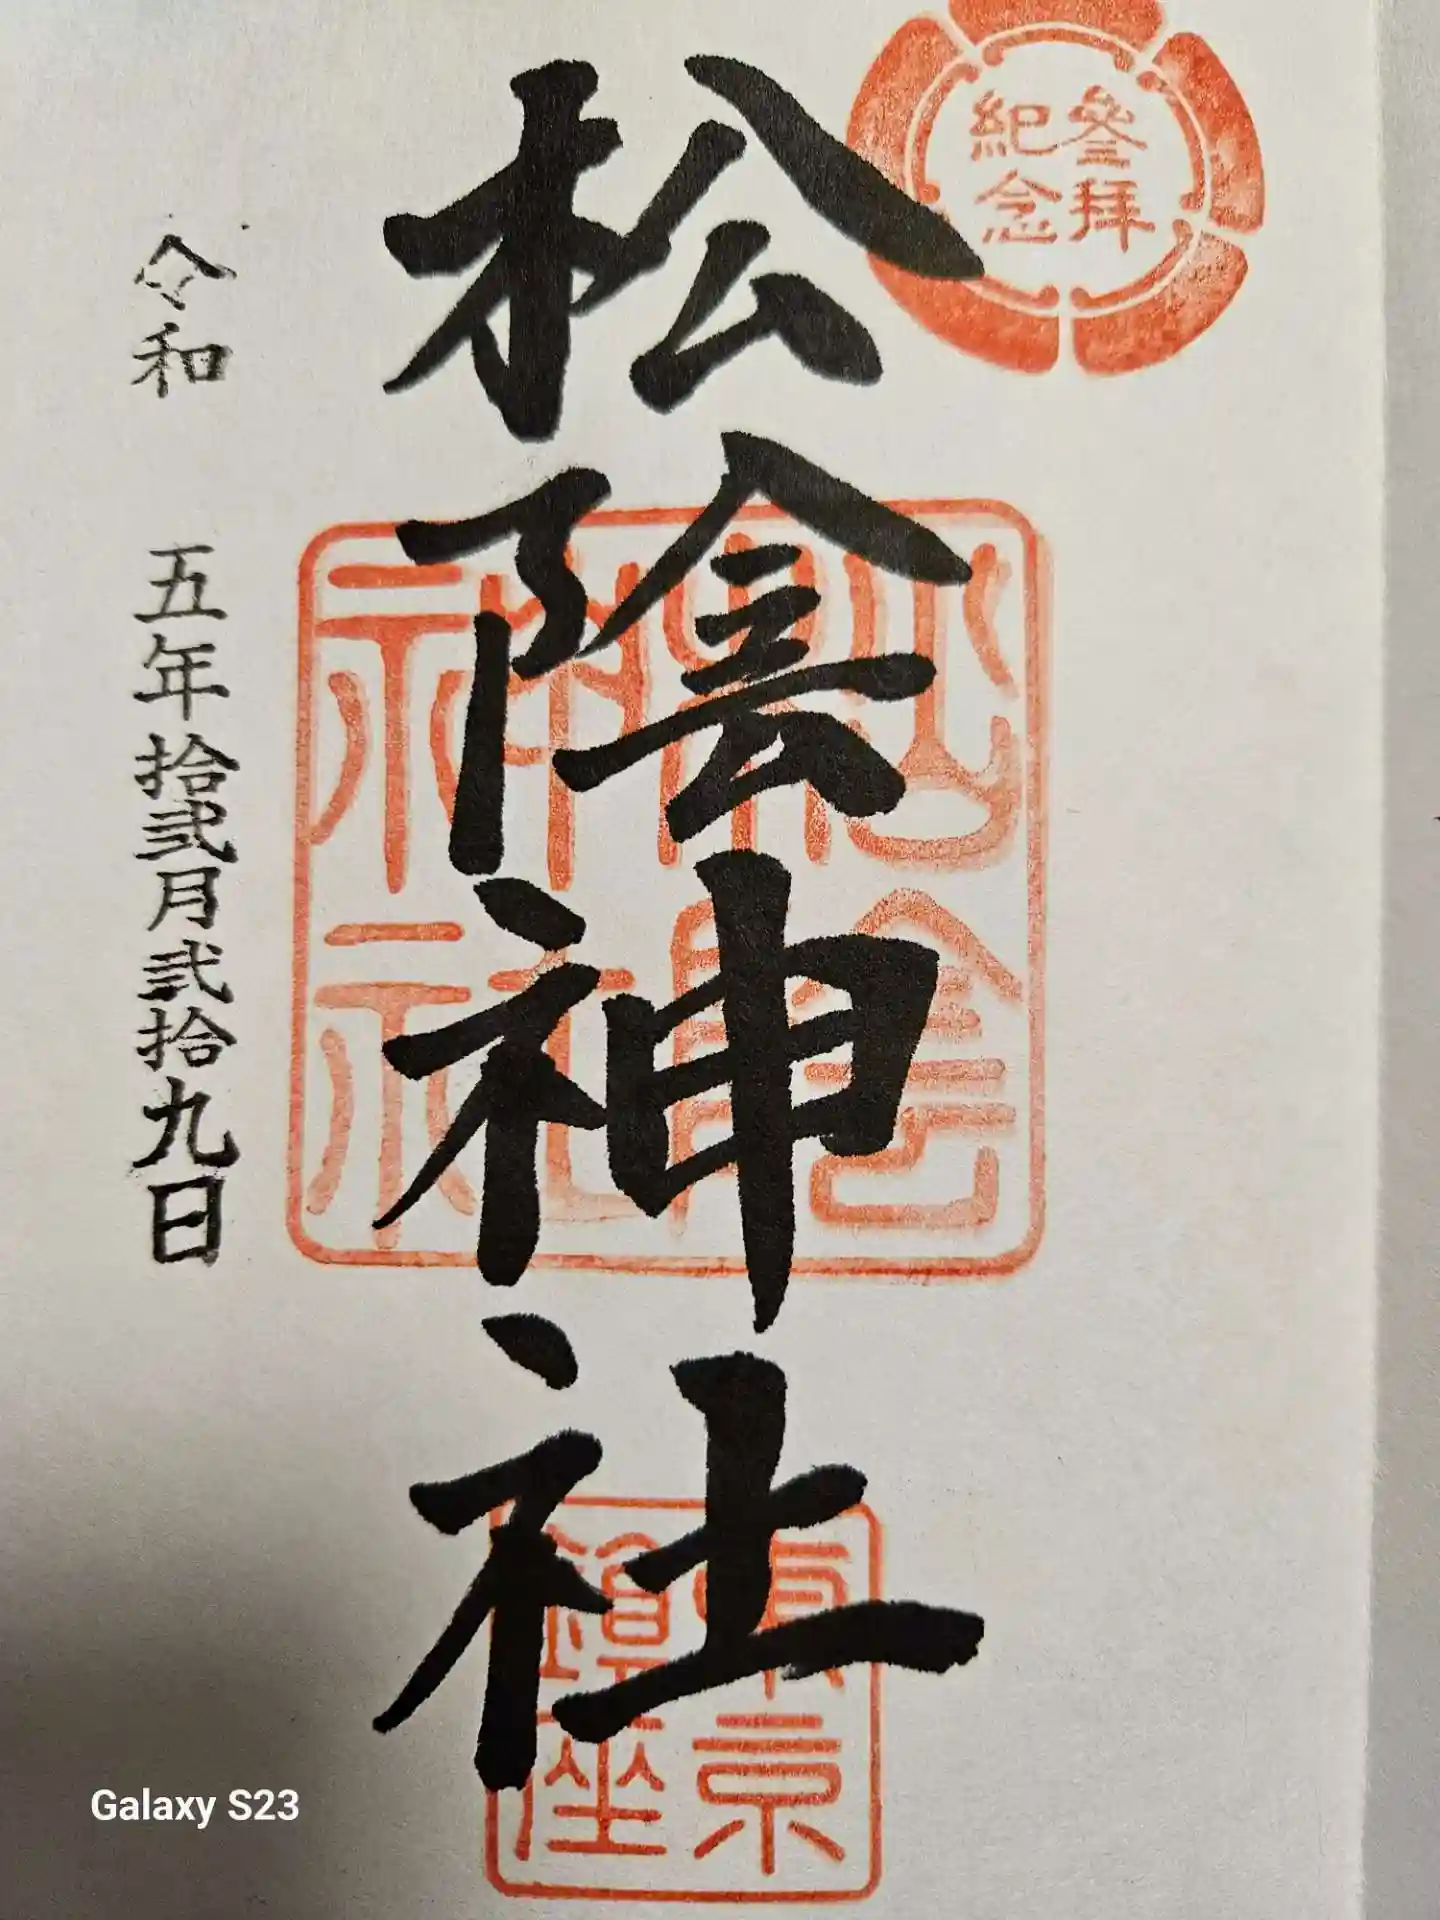 参拜
紀念
松陰神社
松陰
神社
東京
鎮座
令和 五年拾弐月弐拾九日
Galaxy S23